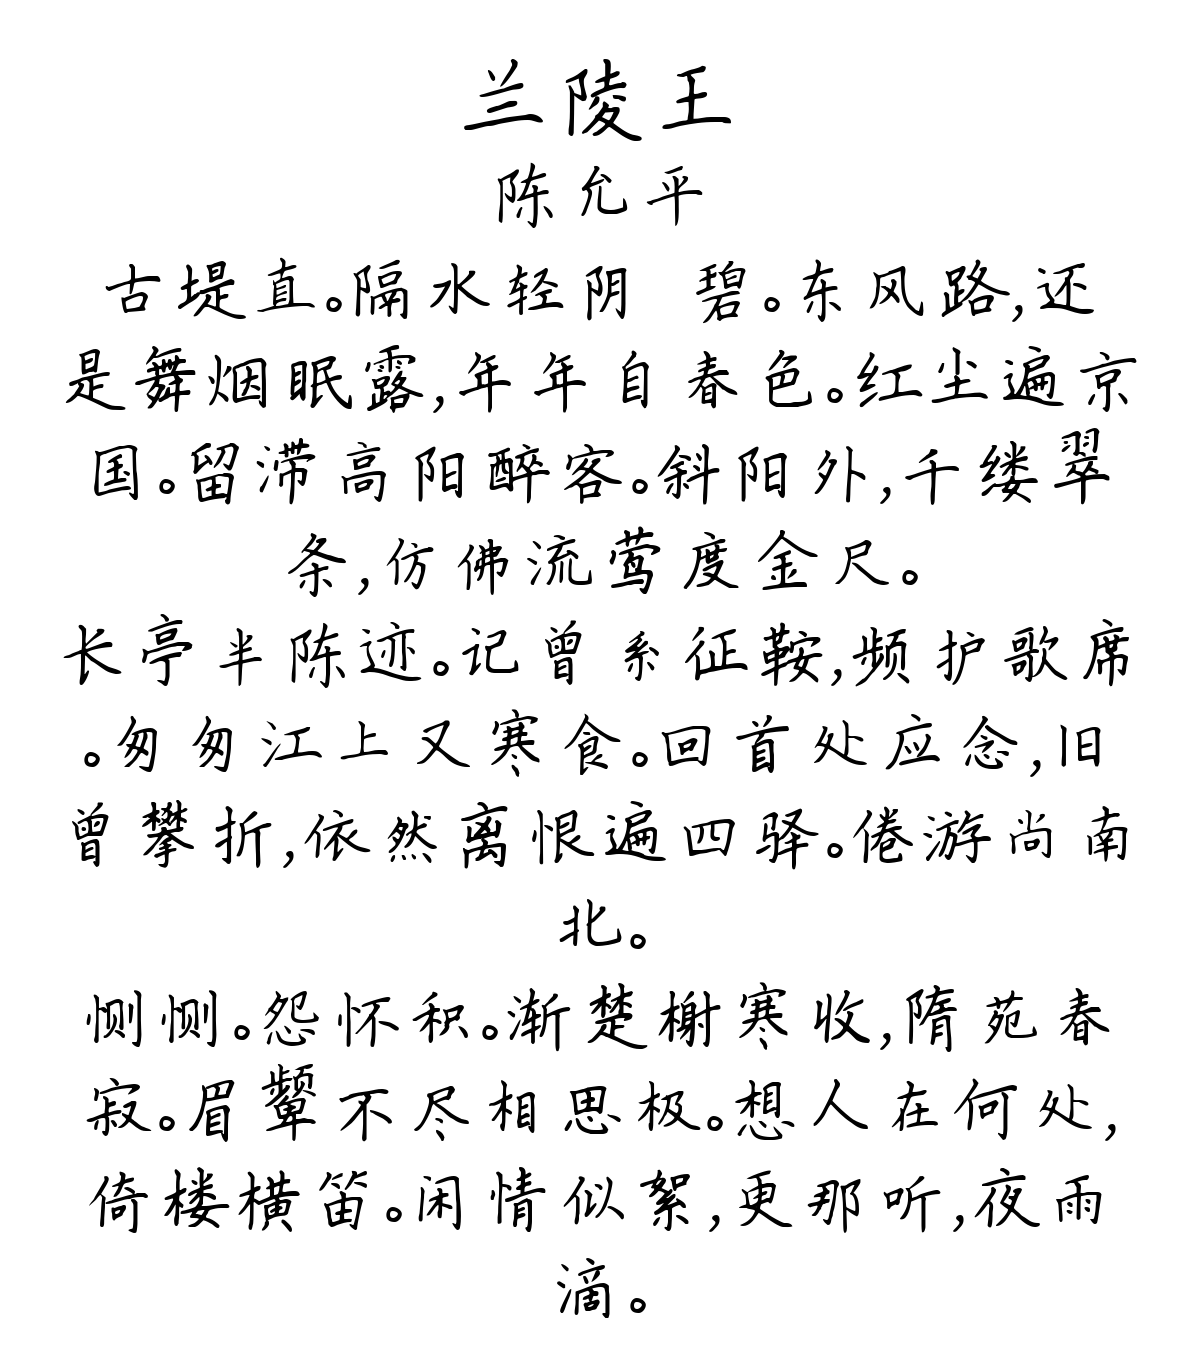 兰陵王
陈允平
古堤直。隔水轻阴 碧。东风路,还
是舞烟眠露,年年自春色。红尘遍京
国。留滞高阳醉客。斜阳外,千缕翠
条,仿佛流莺度金尺。
长亭半陈迹。记曾系征鞍,频护歌席
。匆匆江上又寒食。回首处应念,旧
曾攀折,依然离恨遍四驿。倦游尚南
北。
恻恻。怨怀积。渐楚榭寒收,隋苑春
寂。眉颦不尽相思极。想人在何处,
倚楼横笛。闲情似絮,更那听,夜雨
滴。